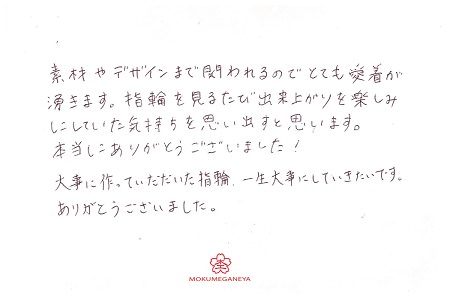 素材やデザインまで関われるのでとても愛着が
湧きます。指輪を見るたび出来上がりを楽しみ
にしていた気持ちを思い出すと思います。
本当にありがとうございました!
大事に作っていただいた指輪、一生大事にしていきたいです。
ありがとうございました。
MOKUMEGANEYA